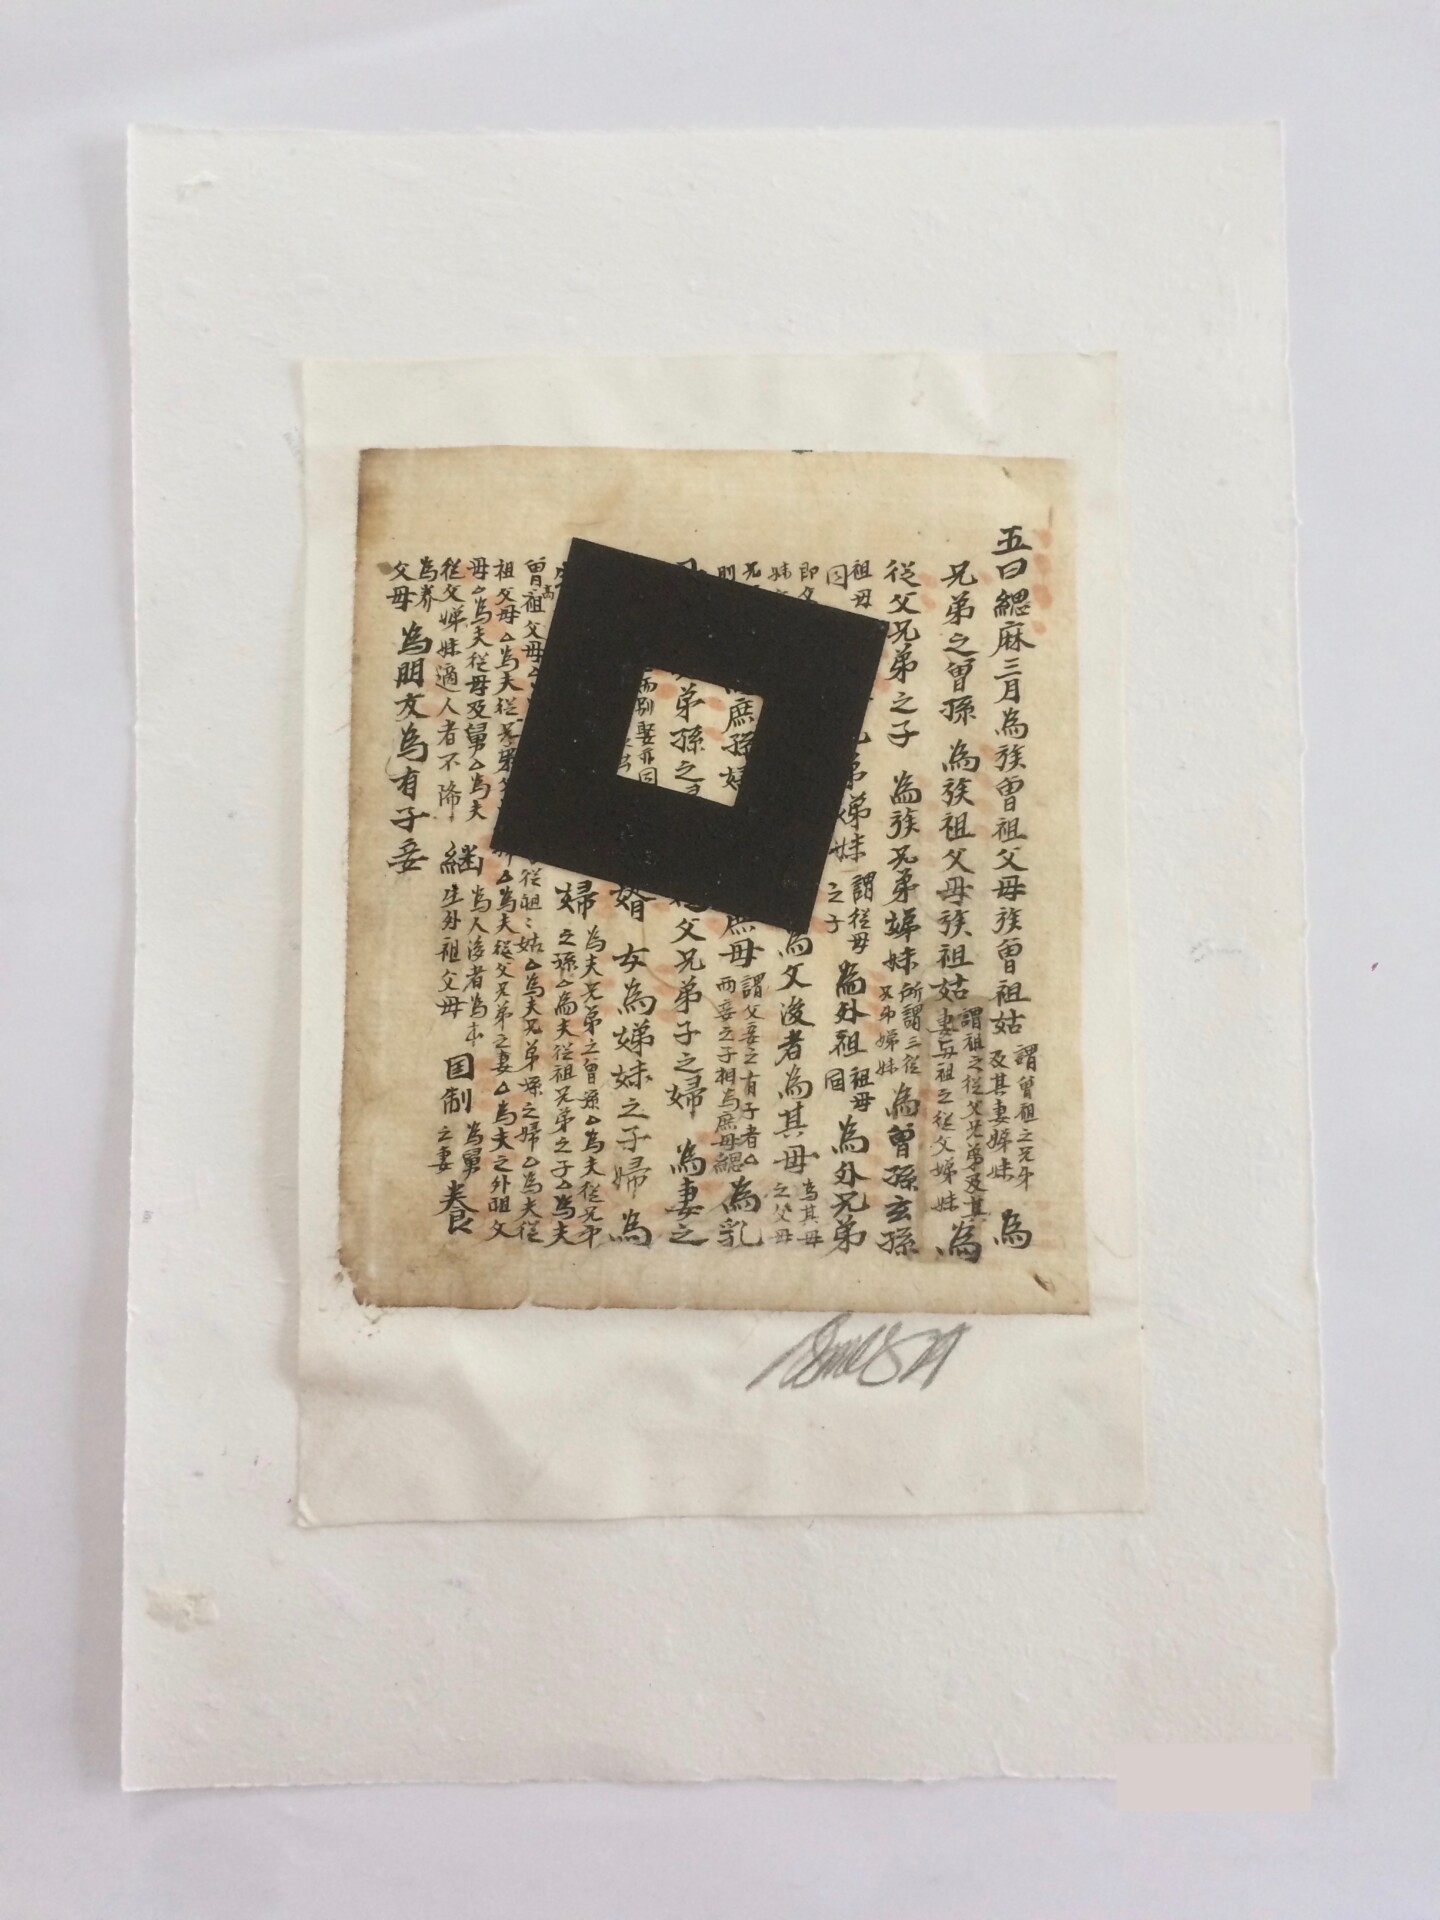 五曰緦麻三月為族曾祖父母族曾祖姑 謂曾祖之兄弟及其妻娣妹 為
兄弟之曾孫 為族祖父母族祖姑 謂祖之從父兄弟及其妻与祖之從父娣妹 為
從父兄弟之子 為族兄弟娣妹 所謂三從兄弟娣妹 為曾孫玄孫
祖母同 弟娣妹 謂從母之子 為外祖 祖母同 為外兄弟
即 妹 為父後者為其母 為其母之父母
則 庶孫婦 庶母 謂父妾之有子者△兩妾之子相為庶母緦 為乳
弟孫之 從父兄弟子之婦 為妻之
而別娶亦同 壻 女為娣妹之子婦 為
婦 為夫兄弟之曾孫△為夫從兄弟之孫△為夫從祖兄弟之子△為夫
曾高祖父母 從祖祖姑△為夫兄弟孫之婦△為夫從
祖父母△為夫從兄弟 △為夫從父兄弟之妻△為夫之外祖父
母△為夫從母及舅△為夫從父娣妹適人者不降 緦 為人後者為本生外祖父母 国制 為舅之妻 養
為養父母 為朋友為有子妾